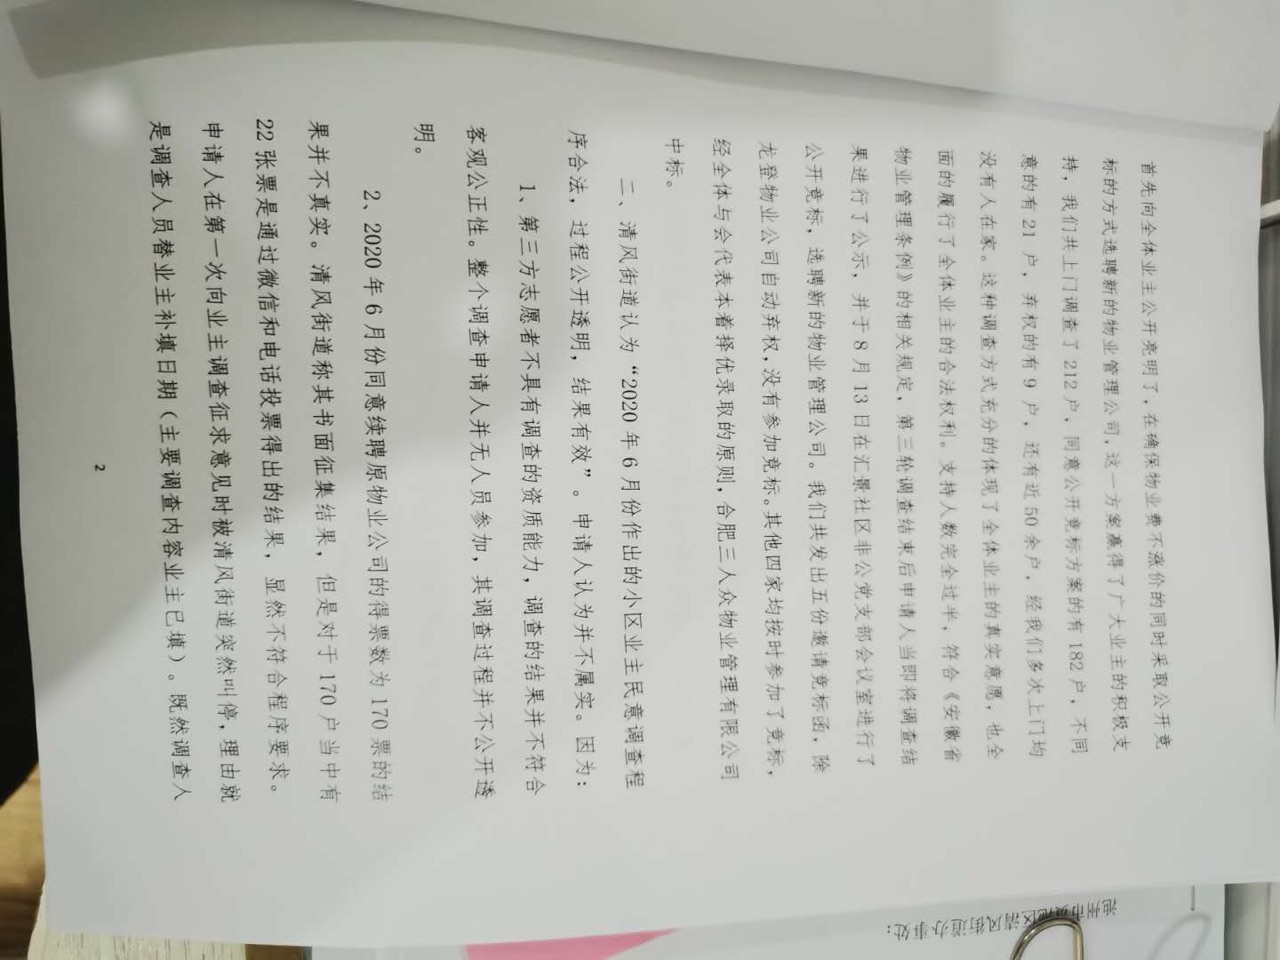 首先向全体业主公开亮明了，在确保物业费不涨价的同时采取公开竞
标的方式选聘新的物业管理公司，这一方案赢得了广大业主的积极支
持，我们共上门调查了212户，同意公开竞标方案的有182户，不同
意的有21户，弃权的有9户，还有近50余户，经我们多次上门均
没有人在家。这种调查方式充分的体现了全体业主的真实意愿，也全
面的履行了全体业主的合法权利。支持人数完全过半，符合《安徽省
物业管理条例》的相关规定，第三轮调查结束后申请人当即将调查结
果进行了公示，并于8月13日在汇景社区非公党支部会议室进行了
公开竞标，选聘新的物业管理公司。我们共发出五份邀请竞标函，除
龙登物业公司自动弃权，没有参加竞标。其他四家均按时参加了竞标，
经全体与会代表本着择优录取的原则，合肥三人众物业管理有限公司
中标。
二、清风街道认为“2020年6月份作出的小区业主民意调查程
序合法，过程公开透明，结果有效”。申请人认为并不属实。因为：
1、第三方志愿者不具有调查的资质能力，调查的结果并不符合
客观公正性。整个调查申请人并无人员参加，其调查过程并不公开透
明。
2、2020年6月份同意续聘原物业公司的得票数为170票的结
果并不真实。清风街道称其书面征集结果，但是对于170户当中有
22张票是通过微信和电话投票得出的结果，显然不符合程序要求。
申请人在第一次向业主调查征求意见时被清风街道突然叫停，理由就
是调查人员替业主补填日期（主要调查内容业主已填）。既然调查人
2
池州市贵池区清风街道办事处：